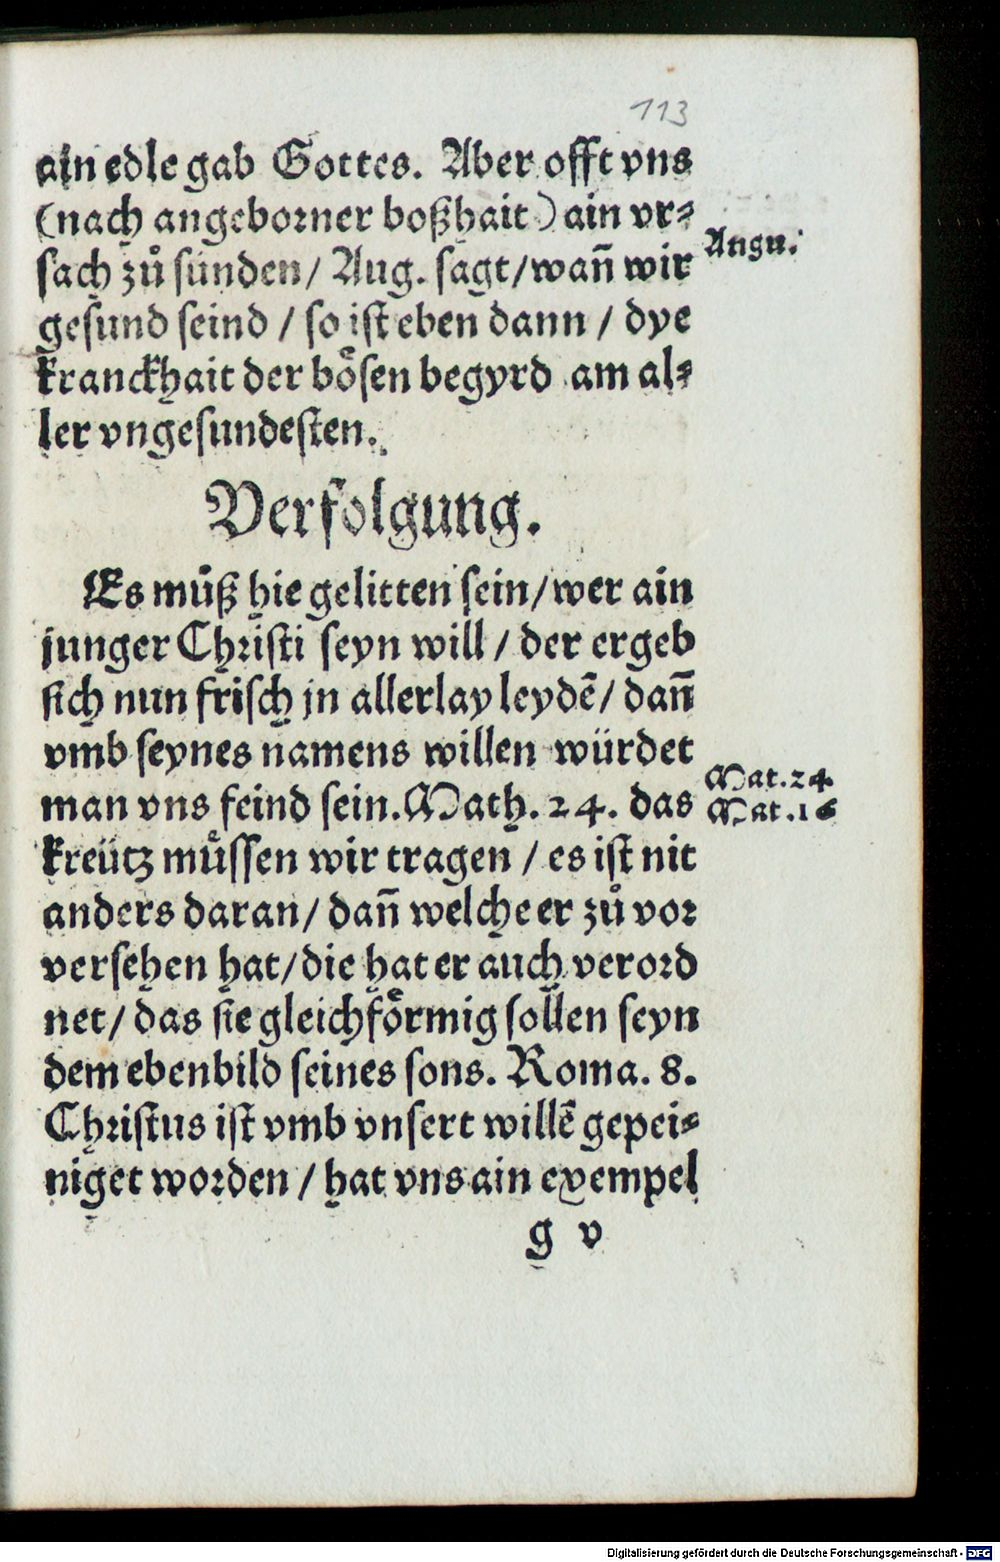 113
ain edle gab Gottes. Aber offt vns
(nach angeborner boßhait) ain vr⸗
sach zů sünden / Aug. sagt / wañ wir
Angu.
gesund seind / so ist eben dann / dye
kranckhait der bösen begyrd am al⸗
ler vngesundesten.
Verfolgung.
Es můß hie gelitten sein / wer ain
junger Christi seyn will / der ergeb
sich nun frisch jn allerlay leydē / dañ
vmb seynes namens willen würdet
Mat. 24
man vns feind sein. Math. 24. das
Mat. 16
kreütz müssen wir tragen / es ist nit
anders daran / dañ welche er zů vor
versehen hat / die hat er auch verord
net / das sie gleichförmig sollen seyn
dem ebenbild seines sons. Roma. 8.
Christus ist vmb vnsert willē gepei⸗
niget worden / hat vns ain exempel
g v
Digitalisierung gefördert durch die Deutsche Forschungsgemeinschaft - DFG